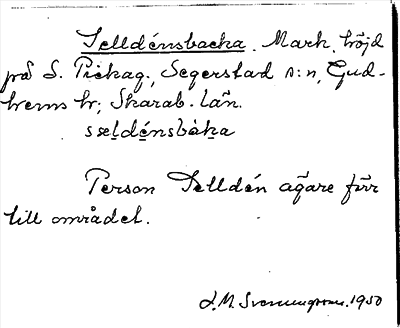 Selldénsbacka. Mark, höjd
på S. Pickag., Segerstad s:n, Gud-
hems hr; Skarab. län.
sseldénsbàka
Person Selldén ägare förr
till området.
J. M. Svenungsson. 1950